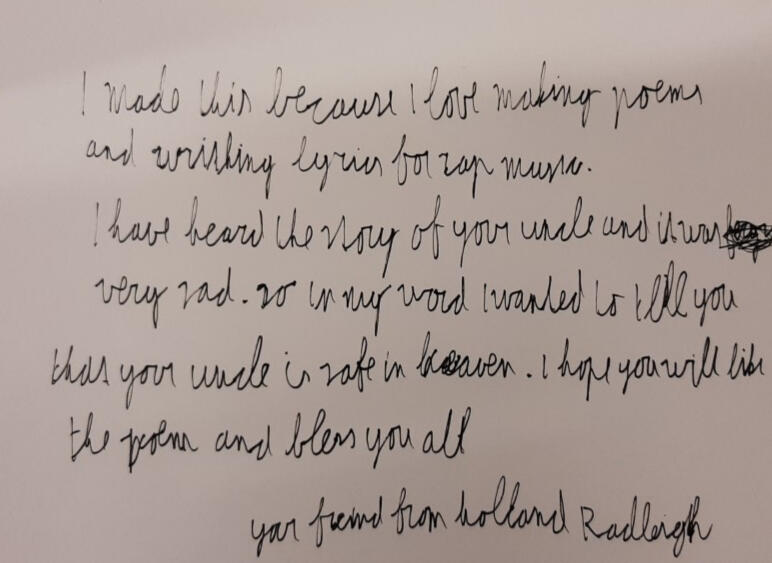 I made this because I love making poems
and wrishing lyrics for rap music.
I have heard the story of your uncle and it was
very sad. so in my word I wanted to tell you
that your uncle is safe in heaven. I hope you will like
the poem and bless you all
your freind from holland Radleigh